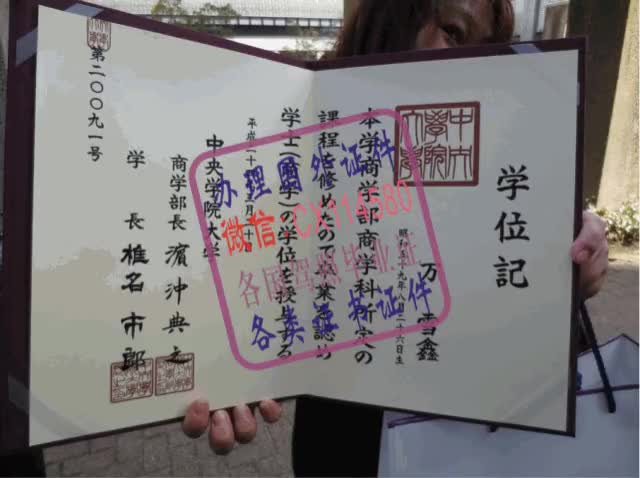 学位記
万雪鑫
昭和五十九年八月二十六日生
本学商学部商学科所定の
課程を修めたので卒業を認め
学士(商学)の学位を授与する
中央学院大学
商学部長 濱沖典之
学長 椎名市郎
第二〇〇九一号
办理国外证件
微信:CX114580
各国驾照毕业证
各类证书证件